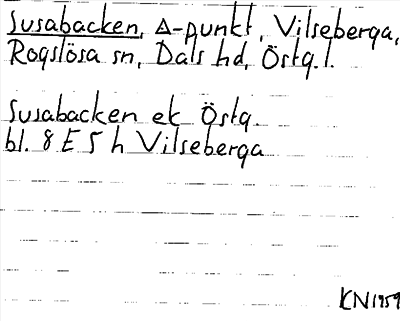 Susabacken, △-punkt, Vilseberga,
Rogslösa sn, Dals hd, Östg.l.
Susabacken ek Östg.
bl. 8 E 5 h Vilseberga
KN 1959